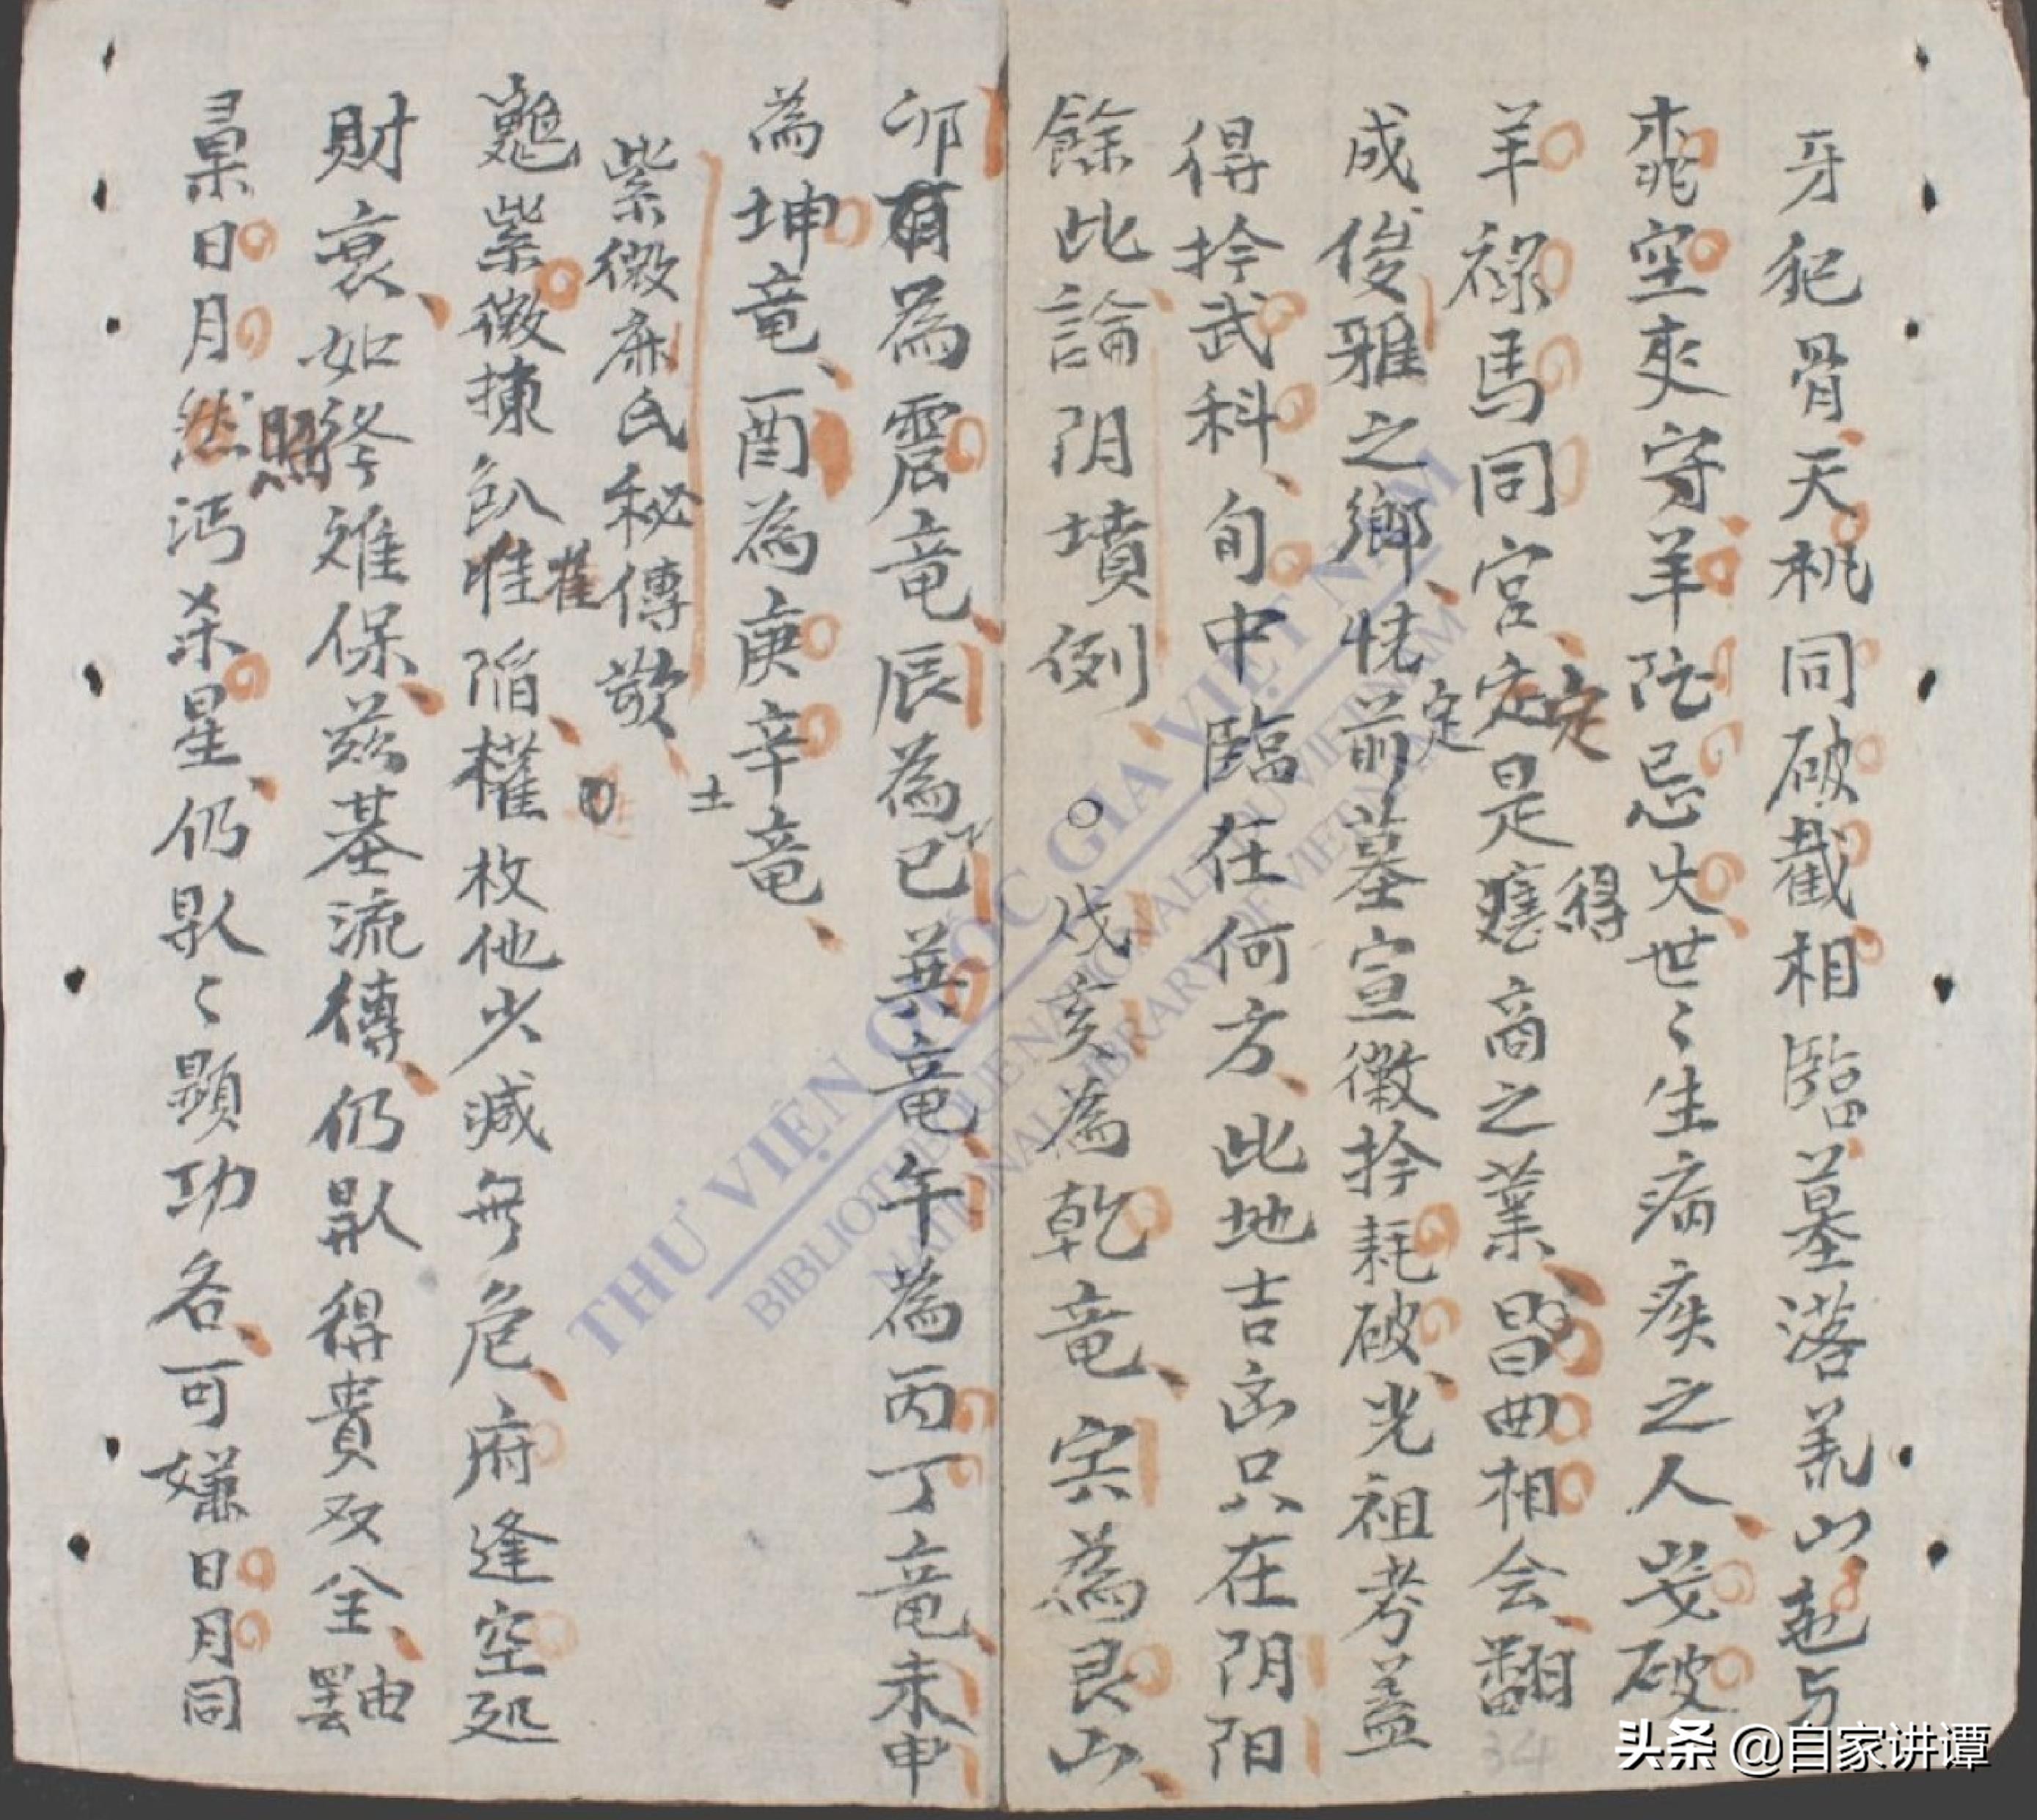 牙犯骨天桃同破截相臨墓落羙山起与
空夾守羊陀忌火世〻生病疾之人 破
羊禄馬同宮定是 商之業昌曲相会翻
定
得
成俊雅之鄉恍前墓宣徽拎耗破光祖考蓋
定
得拎武科旬中臨在何方此地吉凶只在阴阳
餘比論阴墳例 ○ 戌亥為乾竜 為艮山
卯 為震竜辰為巳巽竜午為丙丁竜未申
為坤竜酉為庚辛竜
土
紫微 氏秘傳歌
紫微 陥權枚他少减無危府逢空処
財衰如 难保兹基流傳仍 得貴双全
日月 沔杀星仍 〻顕功名可嫌日月同
照
THƯ VIỆN QUỐC GIA VIỆT NAM
BIBLIOTHEQUE NATIONALE DU VIETNAM
NATIONAL LIBRARY OF VIETNAM
34
头条 @自家讲谭